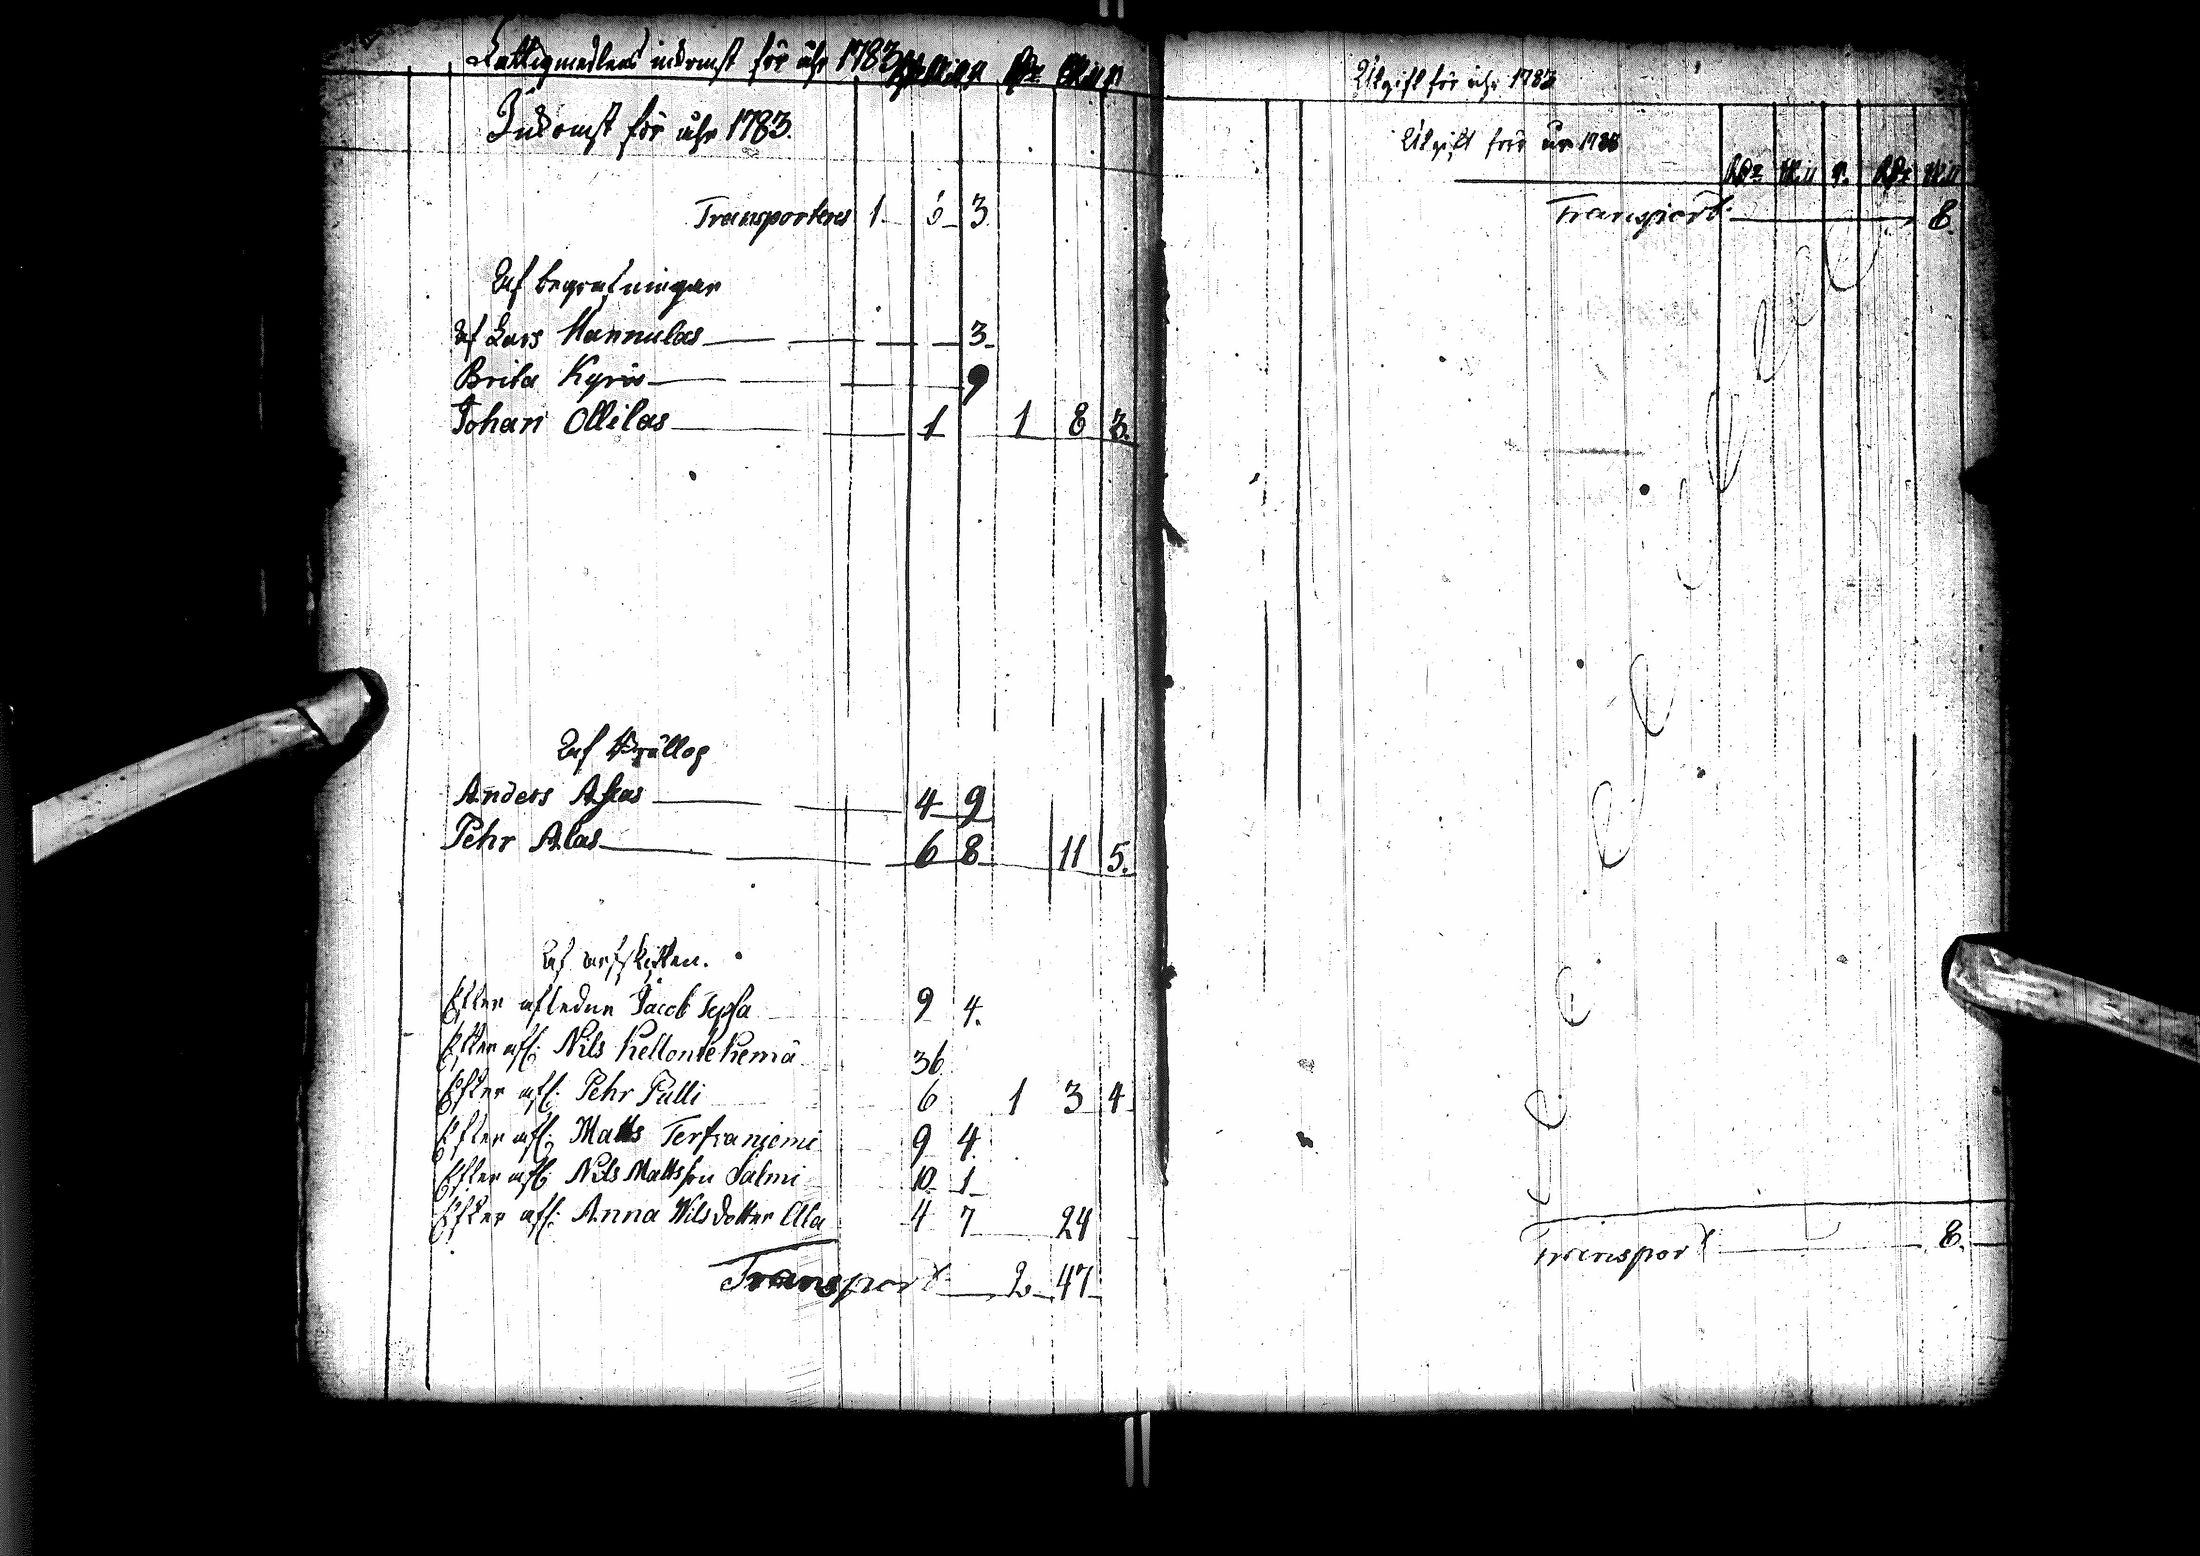 Fattigmedlens inkomst för åhr 1783 Rdr skill. rst Rdr Skill r
Inkomst för åhr 1783.
Transporteras 1. 6 3
Af begrafningar
af Lars Hannulas 3
Brita Kyrös 9
Johan Ollilas 1 1 8 3.
Af Bröllop
Anders 4 9
Pehr Alas 6 8 11 5.
Af arfskiften.
Efter afledne Jacob 9 4.
Efter afl: Nils 36
Efter afl: Pehr Pulli 6 1 3 4
Efter afl: Matts 9 4
Efter afl: Nils Mattsson Salmi 10 1
Efter afl: Anna Nilsdotter Ala 4 7 24
Transport 2 47
Utgift för åhr 1783
Utgift för år 1783
Rdr Skill r. Rdr Skill
Transport 8.
Transport 8.